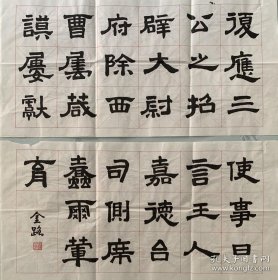 復應三
公之招
辟大尉
府除西
曹屬
謨屢獻
使事日
言王人
嘉德台
司側席
雨葷
育
金